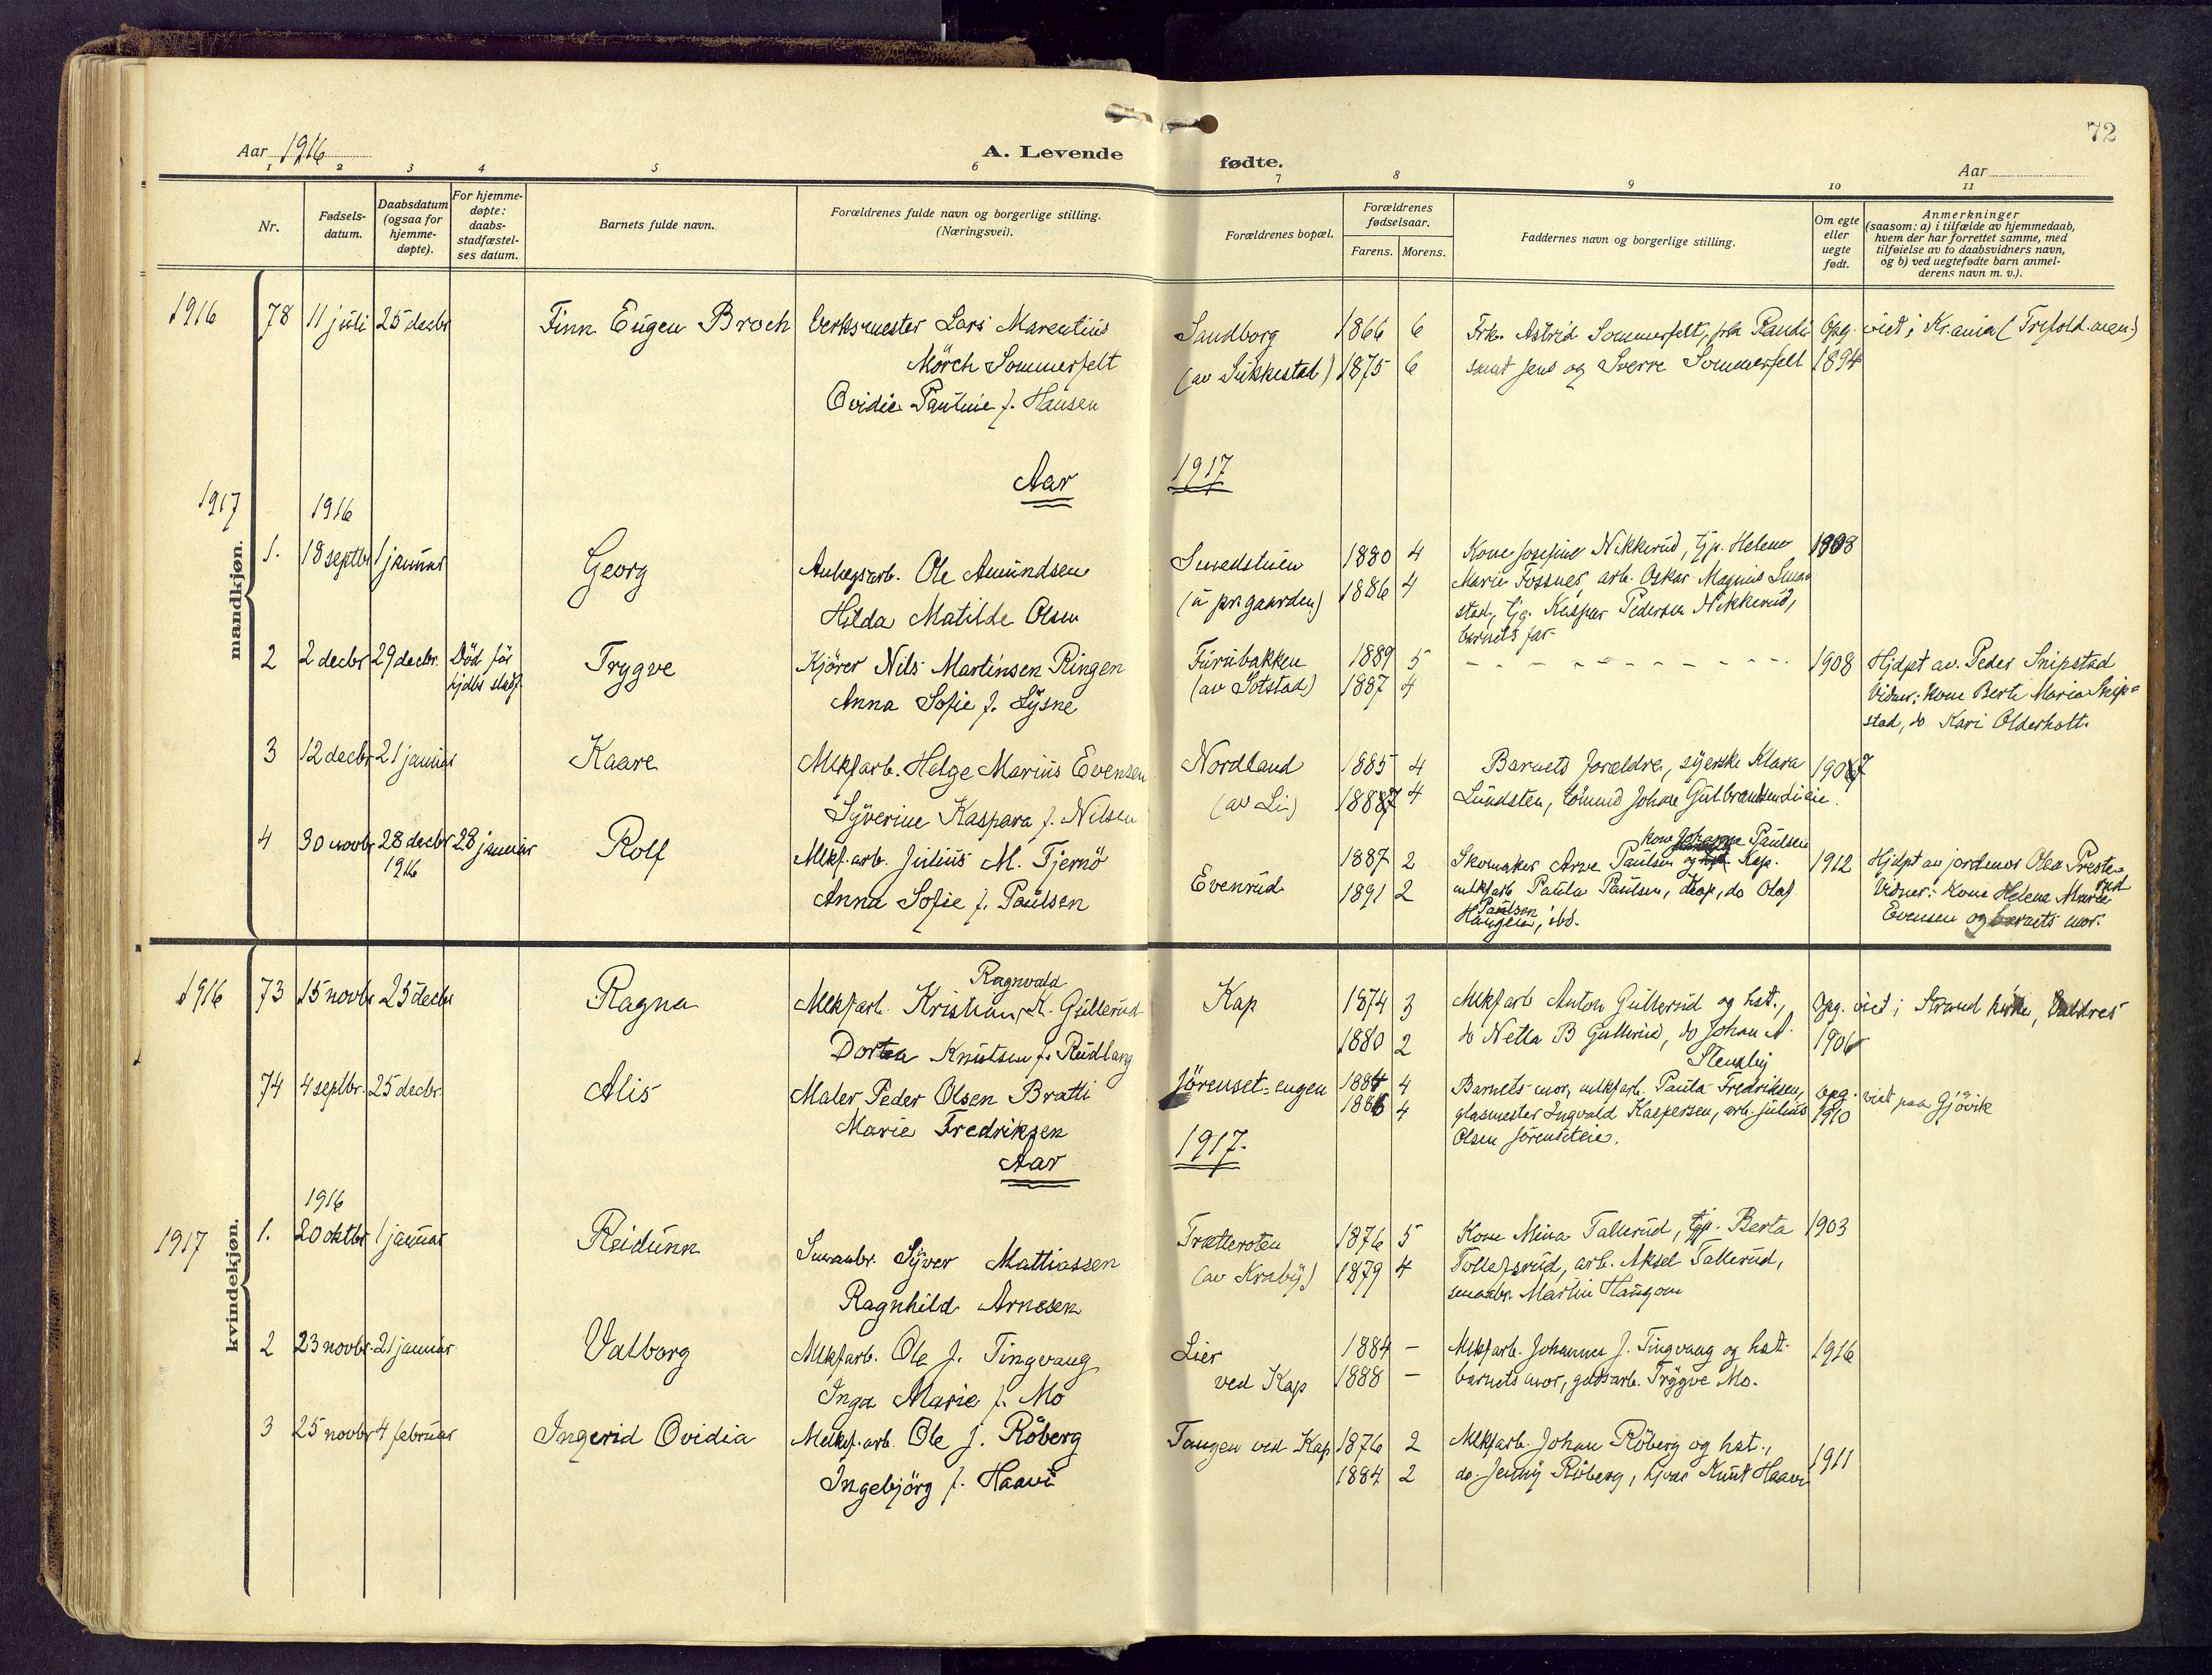 72
Aar 1916
A. Levende fødte.
Aar
1 2 3 4 5 6 7 8 9 10 11
Nr.
Fødsels-
datum.
Daabsdatum
(ogsaa for
hjemme-
døpte).
For hjemme-
døpte:
daabs-
stadfæstel-
ses datum.
Barnets fulde navn.
Forældrenes fulde navn og borgerlige stilling.
(Næringsvei).
Forældrenes bopæl.
Forældrenes
fødselsaar.
Farens. Morens.
Faddernes navn og borgerlige stilling.
Om egte
eller
uegte
født.
Anmerkninger
(saasom: a) i tilfælde av hjemmedaab,
hvem der har forrettet samme, med
tilføielse av to daabsvidners navn,
og b) ved uegtefødte barn anmel-
derens navn m. v.).
mandkjøn.
1916 78 11 juli 25 decbr Finn Eugen Broch Verksmester Lars Marentius Sandborg 1866 6 Frk. Astrid Sommerfelt, frk Randi Opg. viet i Krania (Trefold.men.)
Mörch Sommerfelt (av Sukkestad) 1875 6 samt Jens og Sverre Sommerfelt 1894
Ovidie Pauline f. Hansen
Aar 1917
1917 1916
1. 18 septbr 1 januar Georg Anlegsarb. Ole Amundsen Smedstuen 1880 4 Kone Josefine Nikkerud, tjp. Helene 1908
Hilda Matilde Olsen (u prgaarden) 1886 4 Marie Fossnes, arb. Oskar Magnus
stad, tjg. Kaspar Pedersen Nikkerud,
barnets far
2 2 decbr 29 decbr. Död för Trygve Kjörer Nils Martinsen Ringen Furubakken 1889 5 - - - - - - - - - - 1908 Hjdpt av Peder Snipstad
hjdbs stadf. Anna Sofie f. Lysne (av Sotstad) 1887 4 Vidner: Kone Berte Maria Snip=
stad, do Kari Olderhott.
3 12 decbr 21 januar Kaare Mlkfarb. Helge Marius Evensen Nordland 1885 4 Barnets forældre, syerske Klara 1907
Syverine Kaspara f. Nilsen (av Li) 1887 4 Lundsten, Johne Gulbrandsen Lieie.
4 30 novbr 28 decbr 28 januar Rolf Mlkf.arb. Julius M. Tjernö Evenrud 1887 2 Skomaker Arne Paulsen og kone Johanne Paulsen Kap. 1912 Hjdpt av jordmor Olea Preste-
1916 Anna Sofie f. Paulsen 1891 2 mlkfarb Paula Paulsen, Kap, do Olaf rud
Paulsen Vidner: Kone Helene Marie
Haugen, ibd. Evensen og barnets mor.
kvindekjøn.
1916 73 15 novbr 25 decbr Ragna Mlkfarb. Kristian Ragnvald K. Gullerud Kap 1874 3 Mlkfarb Anton Gullerud og hst., Opg. viet i Strand kirke, Valdres
Dortea Knutsen f. Rudlang 1880 2 do Netta B Gullerud, do Johan A. 1906
Stensby
74 4 septbr. 25 decbr. Alis Maler Peder Olsen Bratli Jörenset=engen 1884 4 Barnets mor, mlkfarb. Paula Fredriksen, opg. viet paa Gjövik
Marie Fredriksen 1886 4 glasmester Ingvald Kaspersen, arb. Julius 1910
Olsen Jörenseteie.
Aar 1917.
1916
1917 1. 20 oktbr 1 januar Reidunn Smaabr. Syver Mattiassen Trætteroten 1876 5 Kone Mina Tallerud, tjp. Berta 1903
Ragnhild Arnesen (av Kraby) 1879 4 Tollefsrud, arb. Aksel Tallerud,
smaabr. Martin Haugom
2 23 novbr. 21 januar Valborg Mlkfarb. Ole J. Tingvang Lier 1884 - Mlkfarb. Johannes J. Tingvang og hst. 1916
Inga Marie f. Mo ved Kap 1888 - barnets mor, gdsarb. Trygve Mo.
3 25 novbr 4 februar Ingerid Ovidia Mlkf.arb. Ole J. Röberg Tangen ved Kap 1876 2 Mlkfarb. Johan Röberg og hst., 1911
Ingebjörg f. Haavi 1884 2 do. Jenny Röberg, Knut Haavi